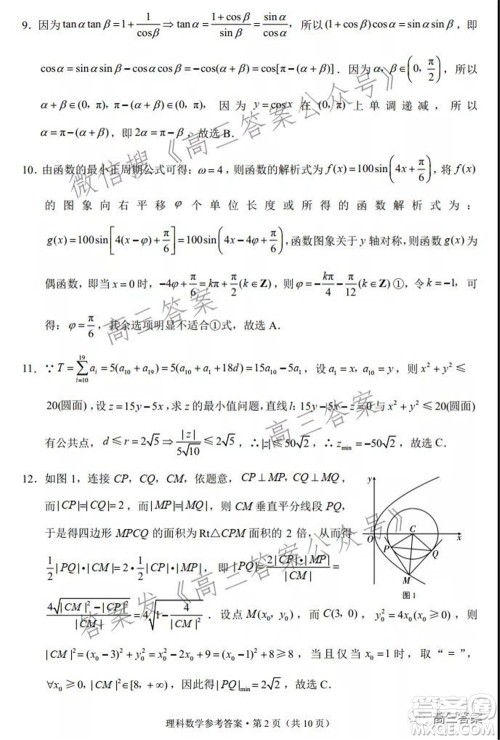 9. 因为tanα tanβ = 1 + 1/cosβ ⇒ tanα = (1+cosβ)/sinβ = sinα/cosα，所以(1+cosβ)cosα = sinα sinβ，即
cosα = sinα sinβ − cosα cosβ = −cos(α+β) = cos[π−(α+β)]．因为α，β∈(0, π/2)，所以
α+β∈(0, π)，π−(α+β)∈(0, π)，因为y=cosx在(0, π)上单调递减，所以
α=π−(α+β)，即2α=π−β，故选B．
10. 由函数的最小正周期公式可得：ω=4，则函数的解析式为f(x)=100sin(4x+π/6)，将
的图象向右平移φ个单位长度或所得的函数解析式为：
g(x)=100sin[4(x−φ)+π/6]=100sin(4x−4φ+π/6)，函数图象关于y轴对称，则函数g(x)为
偶函数，即当x=0时，−4φ+π/6=kπ+π/2(k∈Z)，则φ=−kπ/4−π/12(k∈Z)①，令k=−1，可
得：φ=π/6，其余选项明显不适合①式，故选A．
11. ∵T=∑(i=10→19)a_i=5(a₁₀+a₁₉)=5(a₁₀+a₁+18d)=15a₁₀−5a₁，设a₁=x，a₁₀=y，则x²+y²≤
20(圆面)，设z=15y−5x，求z的最小值问题，直线l：15y−5x−z=0与x²+y²≤20(圆面)
有公共点，d≤r=2√5⇒|z|/(5√10)≤2√5，∴|z|≤50√2，∴z_min=−50√2，故选C．
12. 如图1，连接CP，CQ，CM，依题意，CP⊥MP，CQ⊥MQ，
而|CP|=|CQ|=2，而|MP|=|MQ|，则CM垂直平分线段PQ，
于是得四边形MPCQ的面积为Rt△CPM面积的2倍，从而得
1/2|PQ|·|CM|=2·1/2|CP|·|MP|，即|PQ|=2|CP|·|MP|/|CM|=
4√(|CM|²−|CP|²)/|CM|=4√(1−4/|CM|²)．设点M(x₀, y₀)，而C(3, 0)，y₀²=4x₀(x₀≥0)，
|CM|²=(x₀−3)²+y₀²=x₀²−2x₀+9=(x₀−1)²+8≥8，当且仅当x₀=1时，取“=”，
∀x₀≥0，|CM|²∈[8, +∞)，因此得|PQ|_min=2√2，故选C．
y
C
P
Q
M
x
图1
微信搜《高三答案公众号》
高三答案
答案发《高三答案公众号》
理科数学参考答案·第2页（共10页）
高三答案